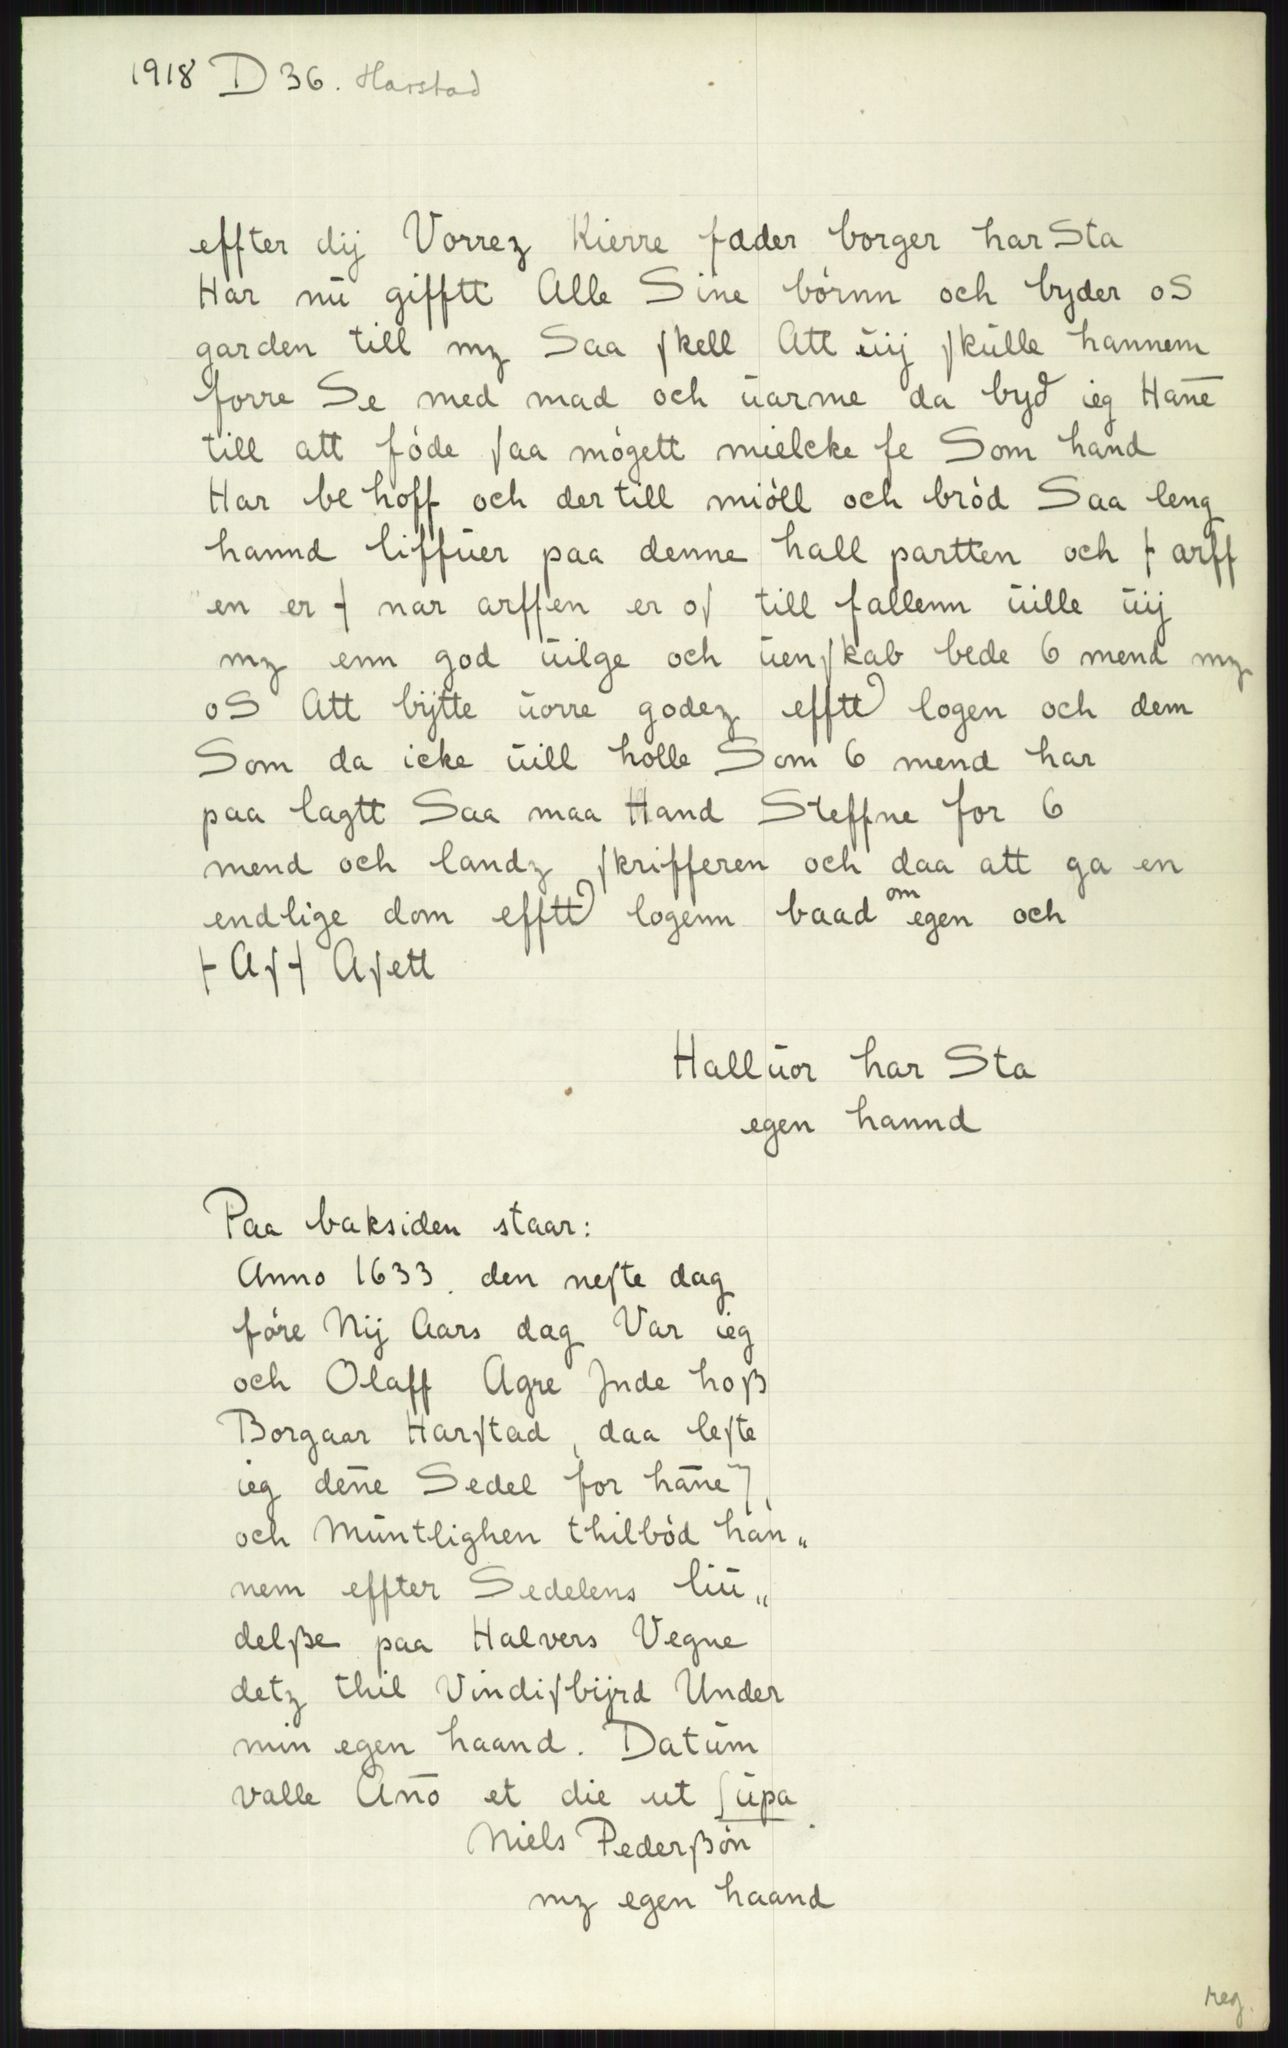 1918 D 36. Harstad
effter dij Vorrez Kierre fader borger har Sta
Har nū gifftt Alle Sine börnn och byder oS
garden till mz Saa ſkell Att ūij ſkūlle hannem
forre Se med mad och ūarme da byd ieg Hañe
till att föde ſaa mögett mielcke fe Som hand
Har be hoff och der till miöll och bröd Saa leng
hannd liffūer paa denne hall partten och ⊢ arff
en er ⊣ nar arffen er oſ till fallenn ūille ūij
mz enn god ūilge och ūenſkab bede 6 mend mz
oS Att bijtte ūorre godez efftt logen och dem
Som da icke ūill holle Som 6 mend har
paa lagtt Saa maa Hand Steffne for 6
mend och landz ſkrifferen och daa att ga en
endlige dom efftt logenn baad om egen och
⊢ Aſ ⊣ Aſett
Hallūor har Sta
egen hannd
Paa baksiden staar:
Anno 1633. den neſte dag
före Nij Aars dag Var ieg
och Olaff Agre Jnde hoß
Borgaar Harſtad, daa leſte
ieg deñe Sedel for hañe
och Mūntlighen thilböd han„
nem effter Sedelens liū„
delße paa Halvers Vegne
detz thil Vindiſbijrd Under
min egen haand. Datūm
valle Año et die ut ſūpa
Niels Pederßön
mz egen haand
reg.